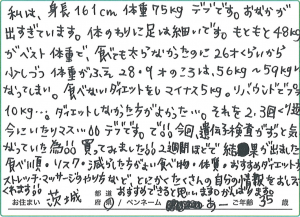 私は、身長161cm 体重75kg デブです。おなかが
出すぎています。体のわりに足は細いです。もともと48kg
がベスト体重で、食べても太らなかったのに26才くらいから
少しづつ体重がふえ 28・9才のころは、56kg〜59kgに
なってしまい。食べないダイエットをし マイナス5kg。リバウンドでプラス
10kg…。ダイエットしなかった方がよかった…。それを2.3回くり返
今にいたりマスデブです。でも今回、遺伝子検査がずっと気
なっていた為 買ってみました 2週間ほどで結果が出ました
食べ順・リスク・減らした方がよい食べ物・体質・おすすめダイエット
ストレッチ・マッサージのやり方などとにかくたくさんの自分の情報をおしえて
くれます
お住まい 茨城 都道府県 おすすめできると思います がんばります
ペンネーム あー ご年齢 35 歳